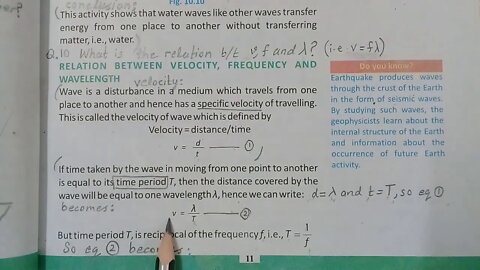 Fig. 10.10
conclusion:
(This activity shows that water waves like other waves transfer
energy from one place to another without transferring
matter, i.e., water.)
Q.10 What is the relation b/t v, f and λ? (i.e v=fλ)
RELATION BETWEEN VELOCITY, FREQUENCY AND
WAVELENGTH velocity:
(Wave is a disturbance in a medium which travels from one
place to another and hence has a specific velocity of travelling.
This is called the velocity of wave which is defined by
Velocity = distance/time
v = d/t ①
If time taken by the wave in moving from one point to another
is equal to its time period T, then the distance covered by the
wave will be equal to one wavelength λ, hence we can write: d=λ and t=T, so eq ①
becomes:
v = λ/T ②
But time period T, is reciprocal of the frequency f, i.e., T = 1/f
So eq ② becomes:
11
Do you know?
Earthquake produces waves
through the crust of the Earth
in the form of seismic waves.
By studying such waves, the
geophysicists learn about the
internal structure of the Earth
and information about the
occurrence of future Earth
activity.